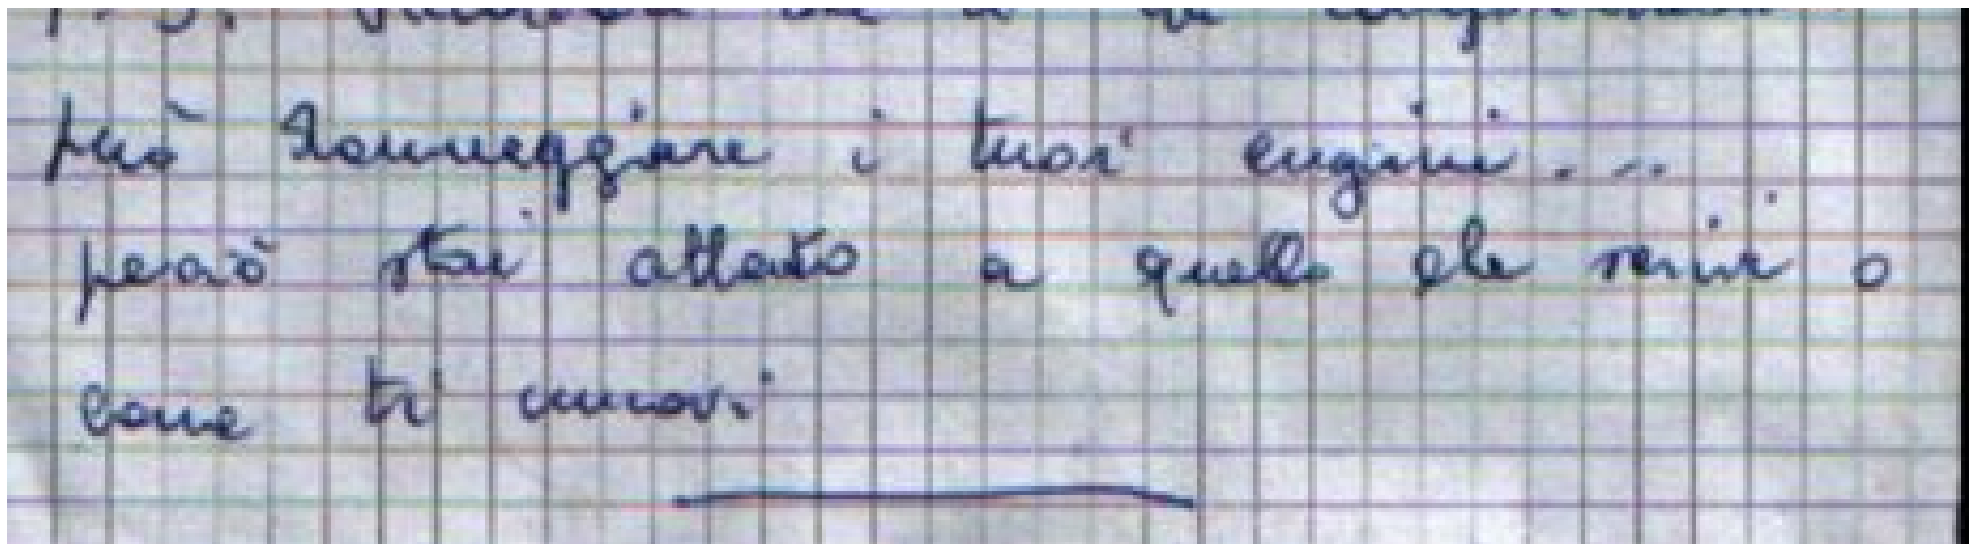 può danneggiare i tuoi cugini...
perciò stai attento a quello che scrivi o
come ti muovi